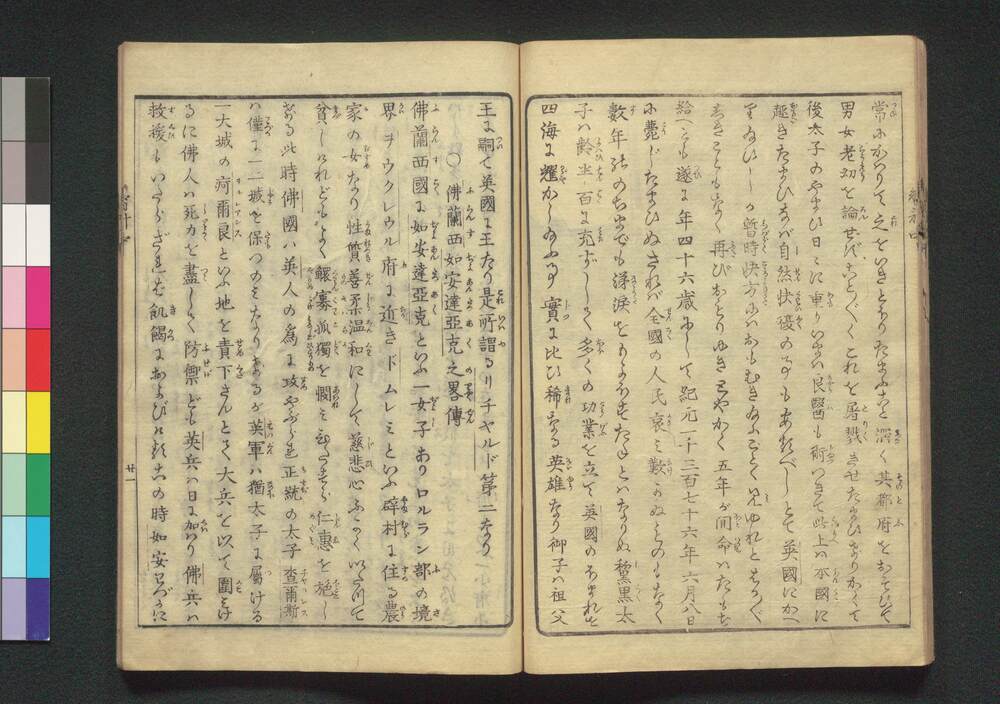 常にかはりて之をいきとほりたまふこと深く其都府をおとしいて
男女老幼を論ぜず、ことごとくこれを屠戮させたまひけりかくて
後太子のやまひ日々に重りいまハ良醫も術つきて此上ハ本國に
趣きたまひなバ自然快優の事もあるべしとて英國にかへ
りゐひしが暫時快方にハおもむきゐふごとく見ゆれとはかばか
しきこともなく再びおとりゆき玉やかく五年が間命ハたもち
給へども遂に年四十六歳にして紀元一千三百七十六年六月八日
に薨じたまひぬされバ全國の人民哀み歎かぬものもなく
数年のちまでも涕涙をもよほすたねとハなりぬ黎黒太
子ハ齢半百に充ずして多くの功業を立て英國のほまれを
四海に耀かしゐふ事實に比ひ稀なる英雄なり御子ハ祖父
王に嗣て英國に王たり是所謂るリチヤルド第二なり
〇佛蘭西如安達亞克之畧傳
佛蘭西國に如安達亞克といふ一女子ありロルラン部の境
界ヲウクレウル府に近きドムレミといふ辟村に住る農
家の女なり性質善柔温和にして慈悲心ふかくいたつて
貧しけれどもよく鰥寡孤獨を憫みひたすら仁惠を施し
ける此時佛國ハ英人の為に攻やぶられ正號の太子查爾斯
ハ僅に一二城を保つのミなりけるが英軍ハ猶太子に属ける
一大城の荷爾良といふ地を責下さんとて大兵を以て圍みけ
るに佛人ハ死力を盡して防禦ども英兵ハ日に加はり佛兵ハ
救援もいたらざれば飢餲におよびける
この時如安
廿一